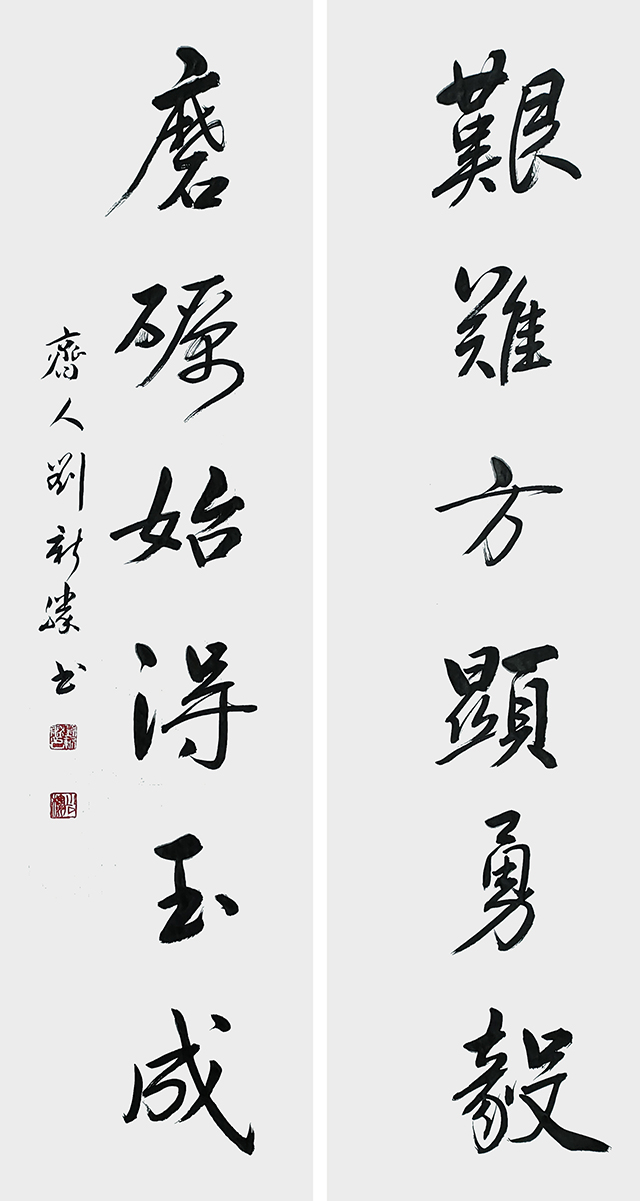 艱難方顯勇毅
磨礪始得玉成
齊人劉新勝書